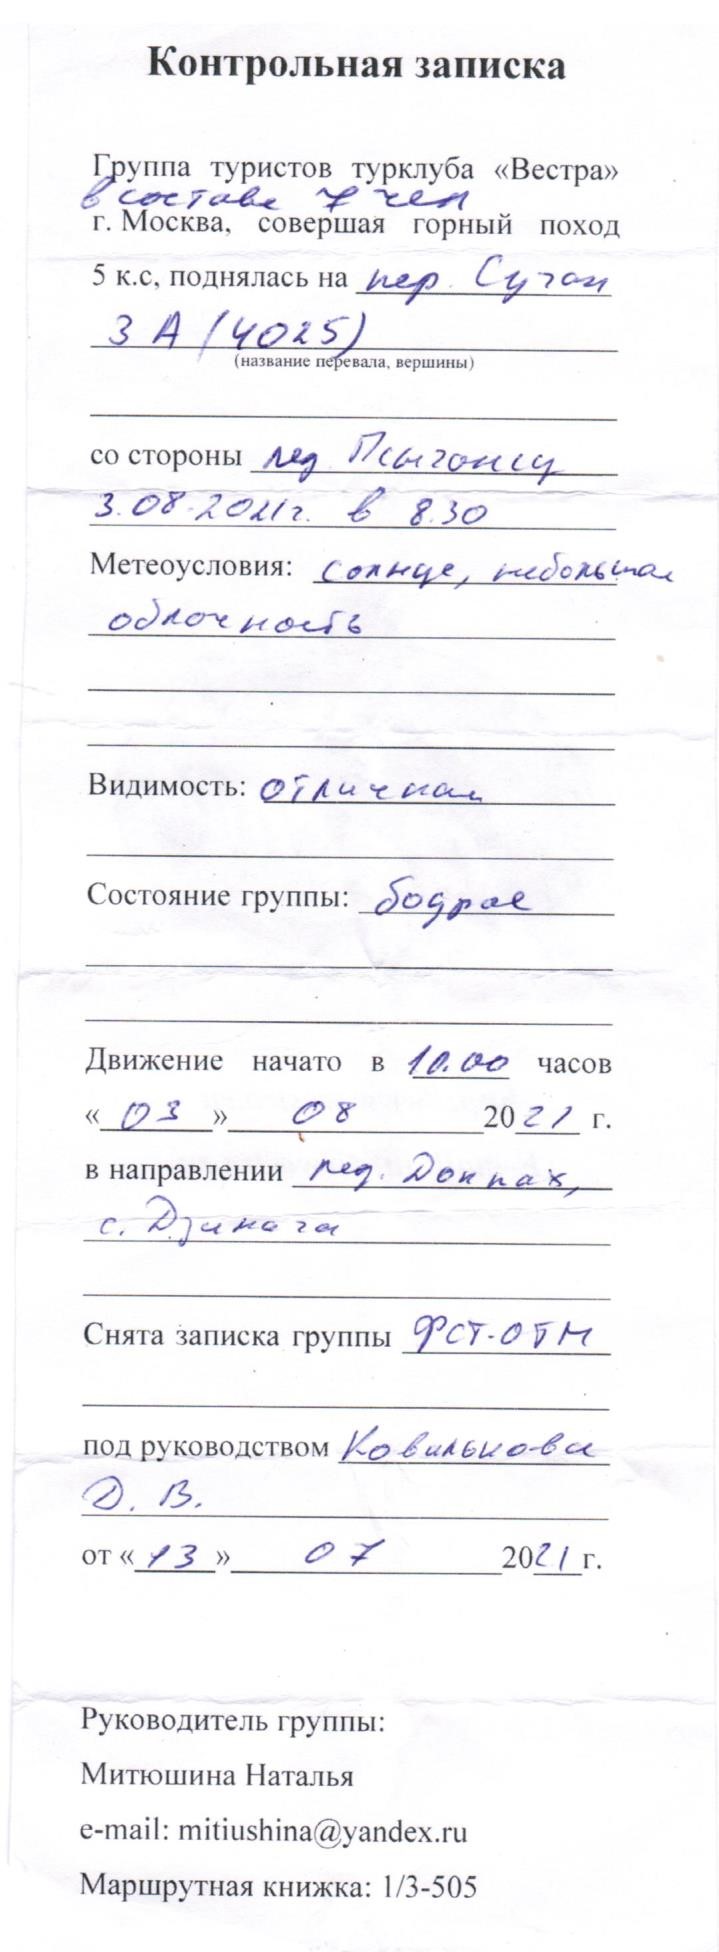 Контрольная записка
Группа туристов турклуба «Вестра»
в составе 7 чел
г. Москва, совершая горный поход
5 к.с, поднялась на пер. Суган
3А (4025)
(название перевала, вершины)
со стороны лед. Псыгансу
3.08.2021г. в 8.30
Метеоусловия: солнце, небольшая
облачность
Видимость: отличная
Состояние группы: бодрое
Движение начато в 10.00 часов
«03» 08 2021 г.
в направлении лед. Доппах,
с. Дзинага
Снята записка группы ФСТ-ОТМ
под руководством Ковинькова
Д. В.
от «13» 07 2021 г.
Руководитель группы:
Митюшина Наталья
e-mail: mitiushina@yandex.ru
Маршрутная книжка: 1/3-505